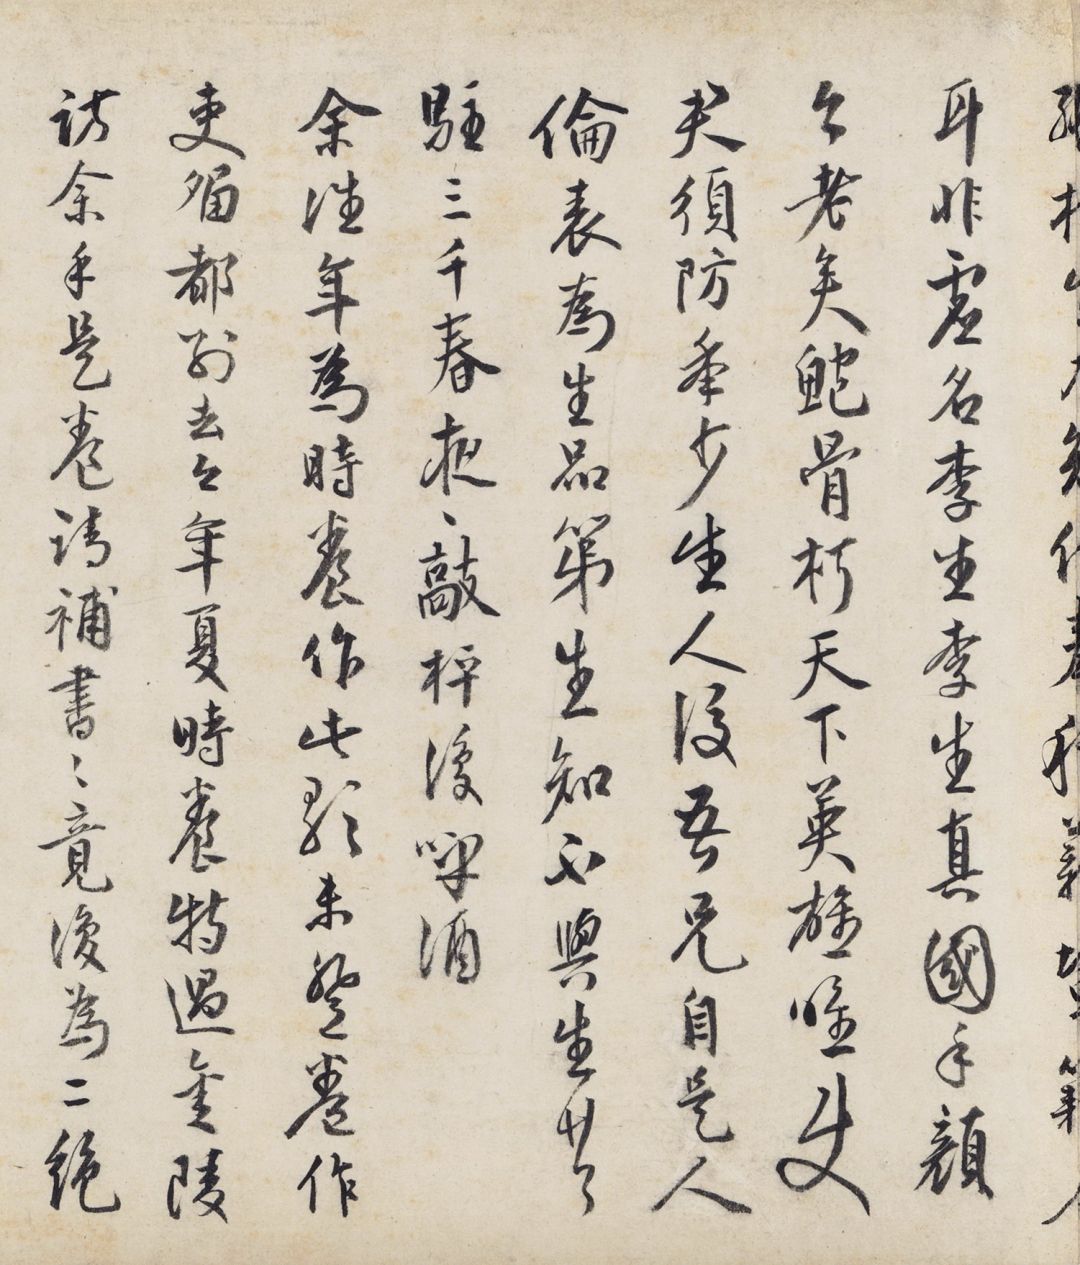 耳非虛名李生李生真國手顏
公老矣鮑骨朽天下英雄唯
須防年少生人後吾兄自是人
倫表為生品第生知不與生
駐三千春夜〻敲枰復呼酒
余往年為時養作此歌未登卷作
吏留都別去今年夏時養特過金陵
訪余手是卷請補書〻竟復為二絕